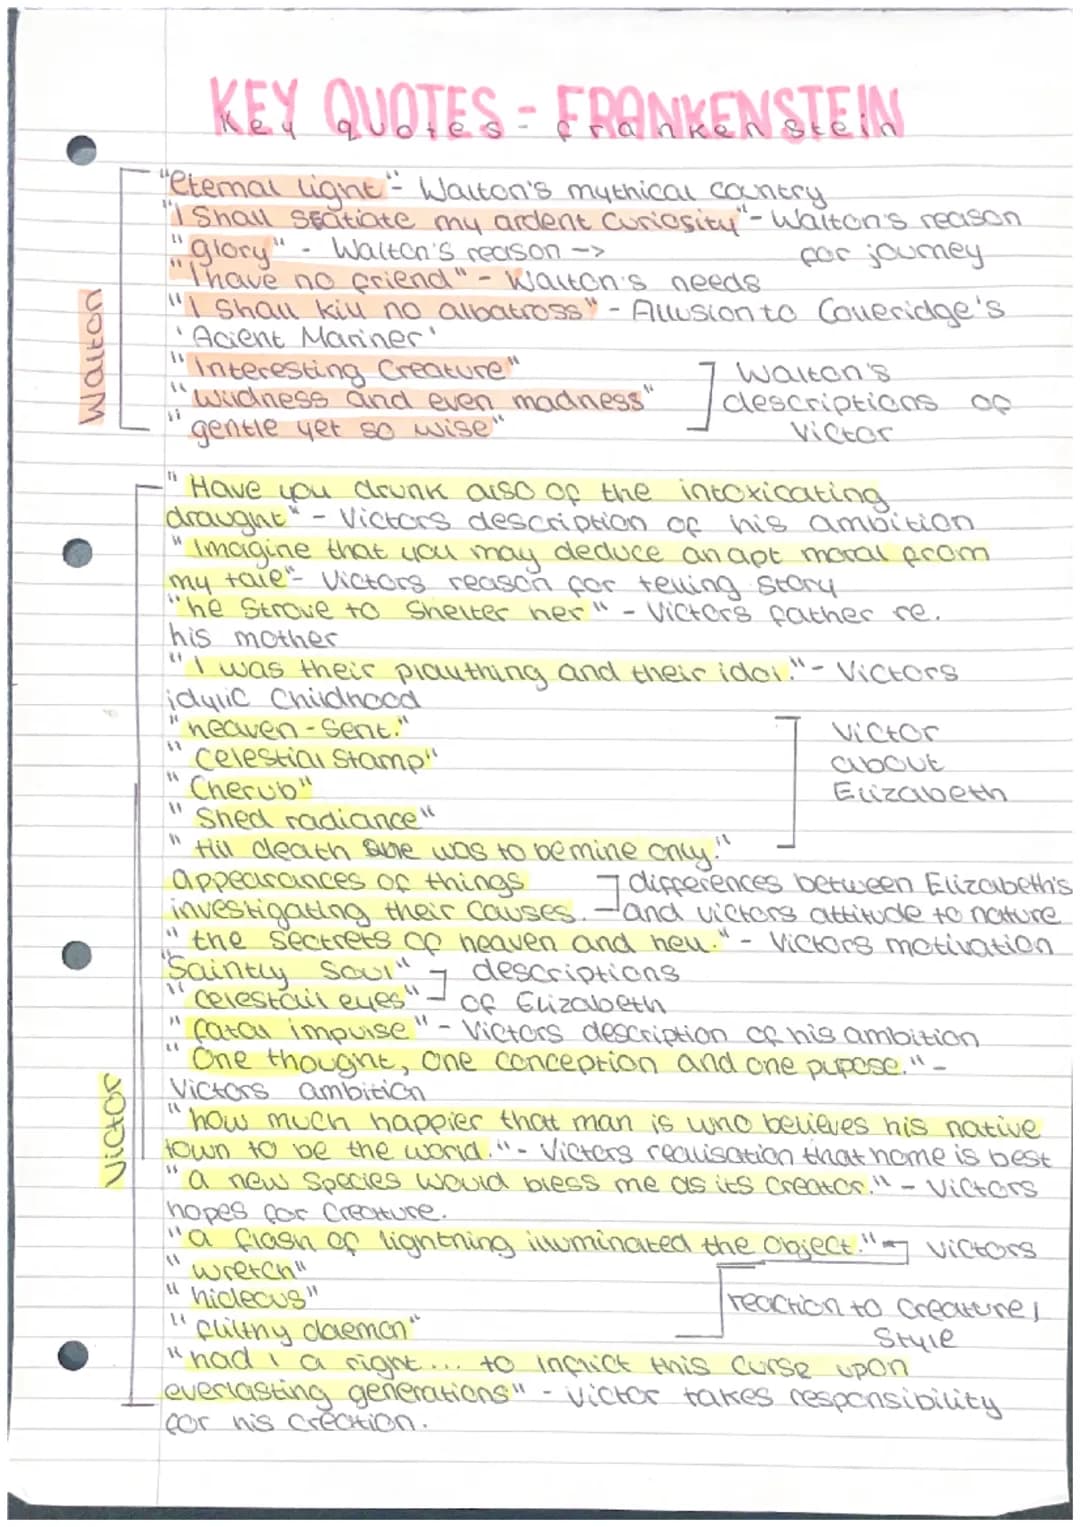 KEY QUOTES - FRANKENSTEIN
Key quotes - frankenstein
Walton
"Eternal light" - Walton's mythical country
"I Shall satiate my ardent curiosity" - Walton's reason
"glory" - Walton's reason -> for journey
"I have no friend" - Walton's needs
"I Shall kill no albatross" - Allusion to Coueridge's
'Acient Mariner'
"Interesting Creature"
"Wildness and even madness"
"gentle yet so wise"
Walton's
descriptions of
Victor
Victor
"Have you drunk also of the intoxicating
draught" - Victors description of his ambition
"Imagine that you may deduce an apt moral from
my tale" - Victors reason for telling story
"he Strove to Shelter her" - Victors father re.
his mother
"I was their plauthing and their idol." - Victors
idylic Childhood
"heaven-sent."
"Celestial Stamp"
"Cherub"
"Shed radiance"
"till death she was to be mine only."
Victor
about
Elizabeth
appearances of things
investigating their causes.
differences between Elizabeth's
and victors attitude to nature
"the sectrets of heaven and hell." - Victors motivation
"Saintly Soul"
"celestail eyes"
descriptions
of Elizabeth
"fatal impulse" - Victors description of his ambition
"One thought, one conception and one pupose." -
Victors ambition
"how much happier that man is who believes his native
town to be the world." - Victors realisation that home is best
"a new species would bless me as its creator." - Victors
hopes for Creature.
"a flash of lightning illuminated the object." - Victors
"wretch"
"hideous"
"filthy daemon"
reaction to Creature/
Style
"had I a right... to inflict this curse upon
everlasting generations" - Victor takes responsibility
for his creation.